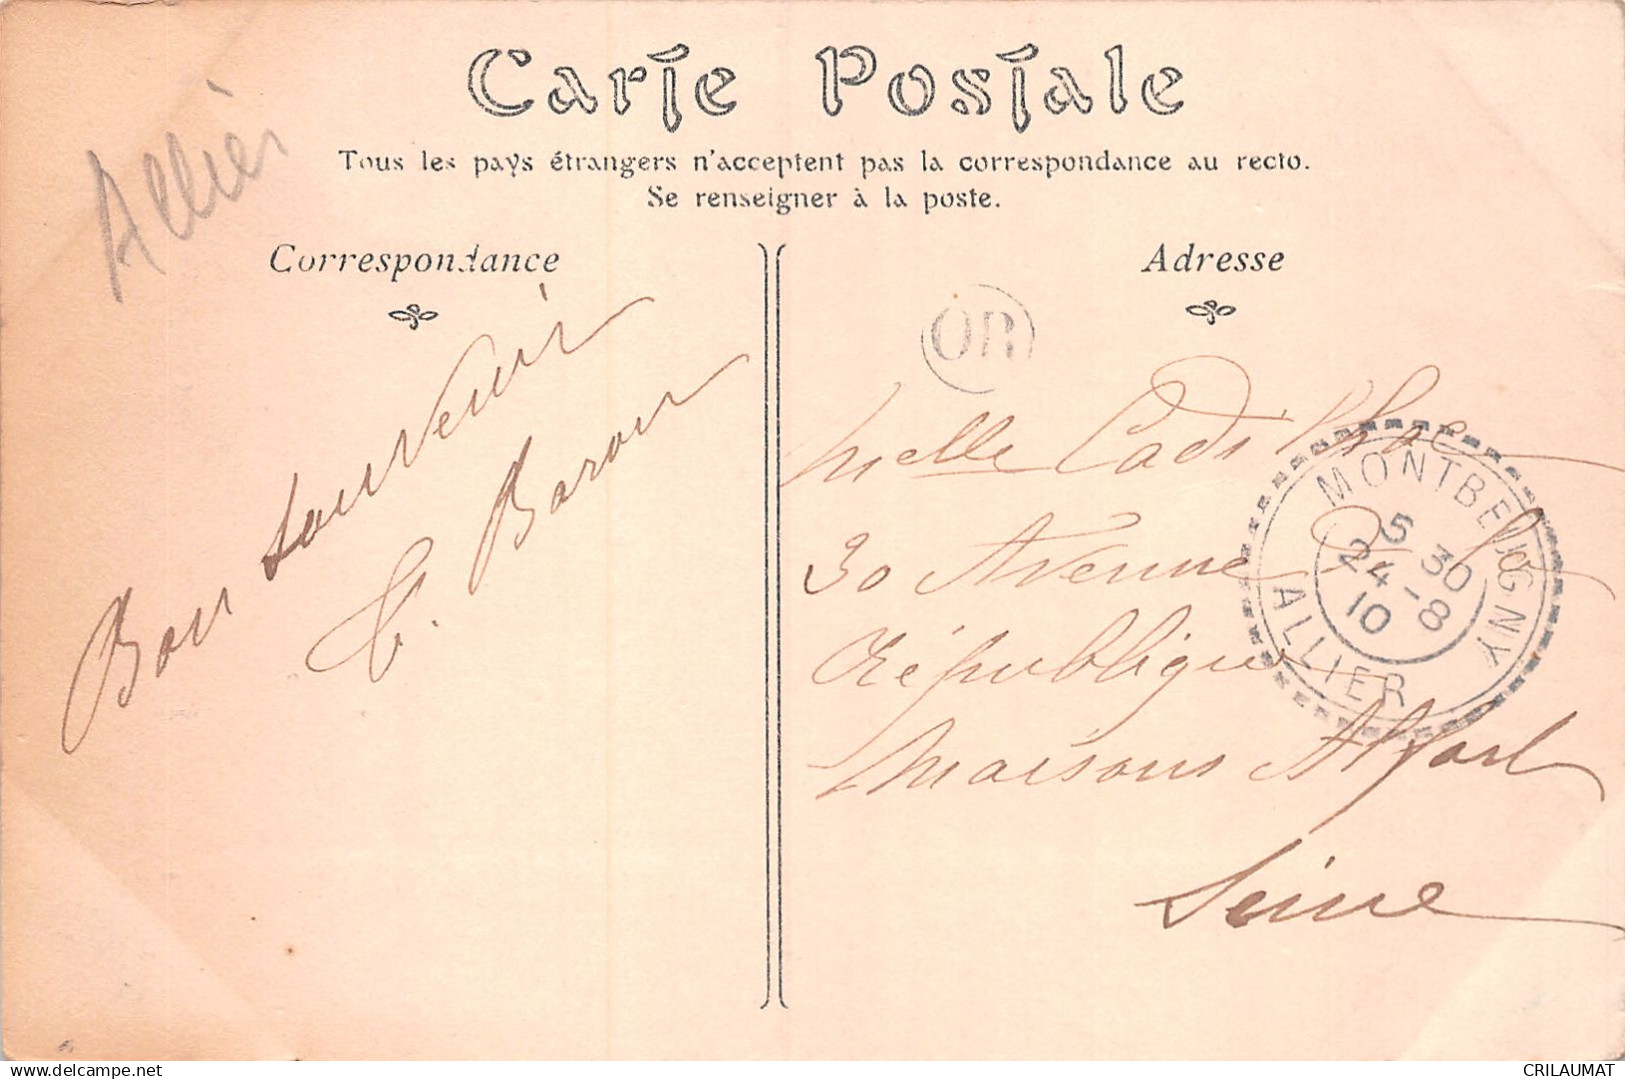 Carte Postale
Tous les pays étrangers n'acceptent pas la correspondance au recto.
Se renseigner à la poste.
Allier
Correspondance
Bon souvenir
C. Baron
Adresse
OR
Melle Cadi
30 Avenue de la
République
Maisons Alfort
Seine
MONTBEUGNY
5 30
24-8
10
ALLIER
CRILAUMAT